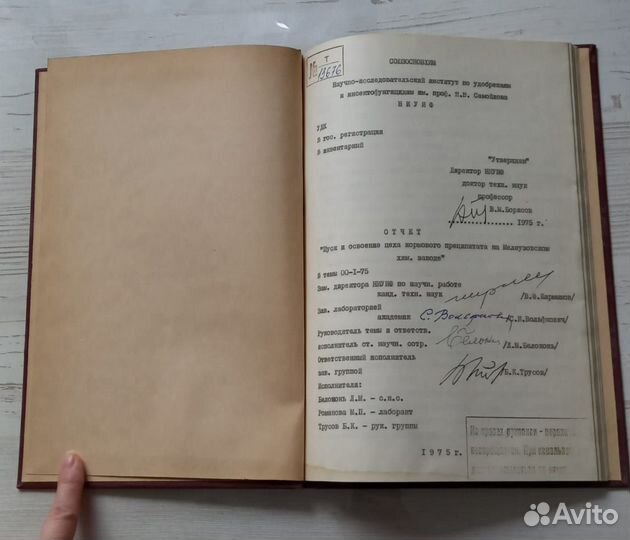 Т
№ 13676
СОЮЗОСНОВХИМ
Научно-исследовательский институт по удобрениям
и инсектофунгицидам им. проф. Я.В. Самойлова
НИУИФ
УДК
№ гос. регистрации
№ инвентарный
"Утверждаю"
Директор НИУИФ
доктор техн. наук
профессор
В.М.Борисов
1975 г.
ОТЧЕТ
"Пуск и освоение цеха кормового преципитата на Мелеузовском
хим. заводе"
№ темы 00-I-75
Зам. директора НИУИФ по научн. работе
канд. техн. наук /В.Ф.Кармышов/
Зав. лабораторией
академик С. Вольфкович /С.И.Вольфкович/
Руководитель темы и ответств.
исполнитель ст. научн. сотр. /Л.М.Белоконь/
Ответственный исполнитель
зав. группой /Б.К.Трусов/
Исполнители:
Белоконь Л.М. - с.н.с.
Романова М.П. - лаборант
Трусов Б.К. - рук. группы
1975 г.
На правах рукописи -
Avito